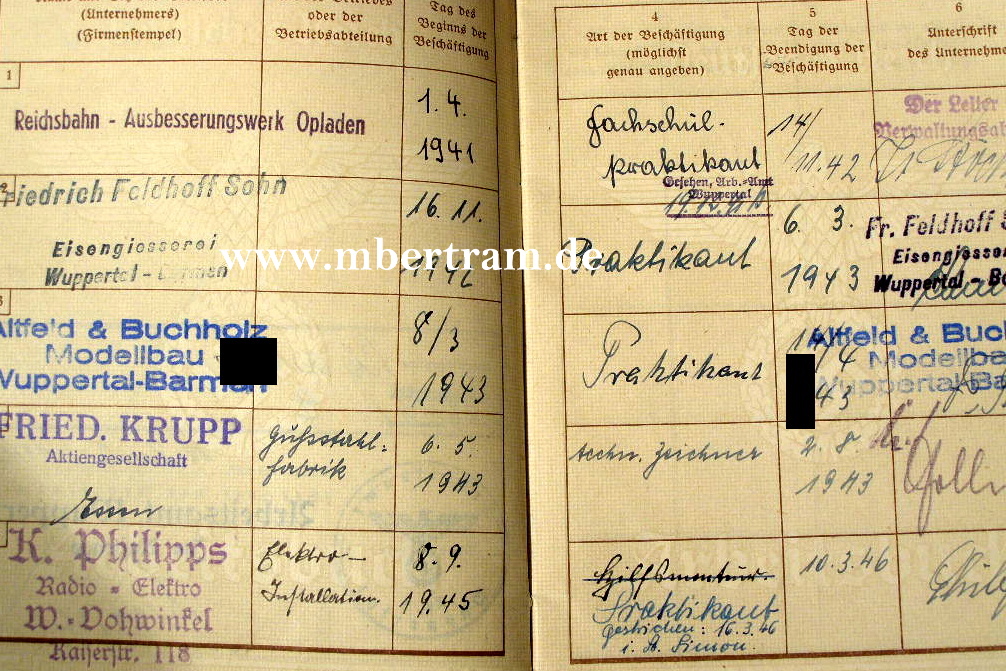 (Unternehmers)
(Firmenstempel)
oder der
Betriebsabteilung
Tag des
Beginns der
Beschäftigung
1
Reichsbahn - Ausbesserungswerk Opladen
1. 4.
1941
Friedrich Feldhoff Sohn
Eisengiesserei
Wuppertal - Barmen
16. 11.
1942
3
Altfeld & Buchholz
Modellbau
Wuppertal-Barmen
8/3
1943
FRIED. KRUPP
Aktiengesellschaft
Essen
Gußstahl-
fabrik
6. 5.
1943
K. Philipps
Radio - Elektro
W.-Vohwinkel
Kaiserstr. 118
Elektro-
Installation.
8. 9.
19.45
4
Art der Beschäftigung
(möglichst
genau angeben)
5
Tag der
Beendigung der
Beschäftigung
6
Unterschrift
des Unternehme
Fachschul-
praktikant
Gesehen, Arb.-Amt
Wuppertal
14/
11. 42
Der Leiter
Praktikant
6. 3.
1943
Fr. Feldhoff S
Eisengiesser
Wuppertal - Ba
Praktikant
43
Altfeld & Buc
Modellba
Wuppertal-Ba
techn. Zeichner
2. 8.
1943
Hilfsmonteur.
Praktikant
gestrichen: 16.3.46
i. A. Simon.
10. 3. 46
www.mbertram.de